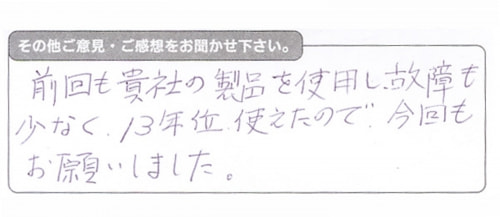 その他ご意見・ご感想をお聞かせ下さい。
前回も貴社の製品を使用し、故障も
少なく、13年位、使えたので、今回も
お願いしました。